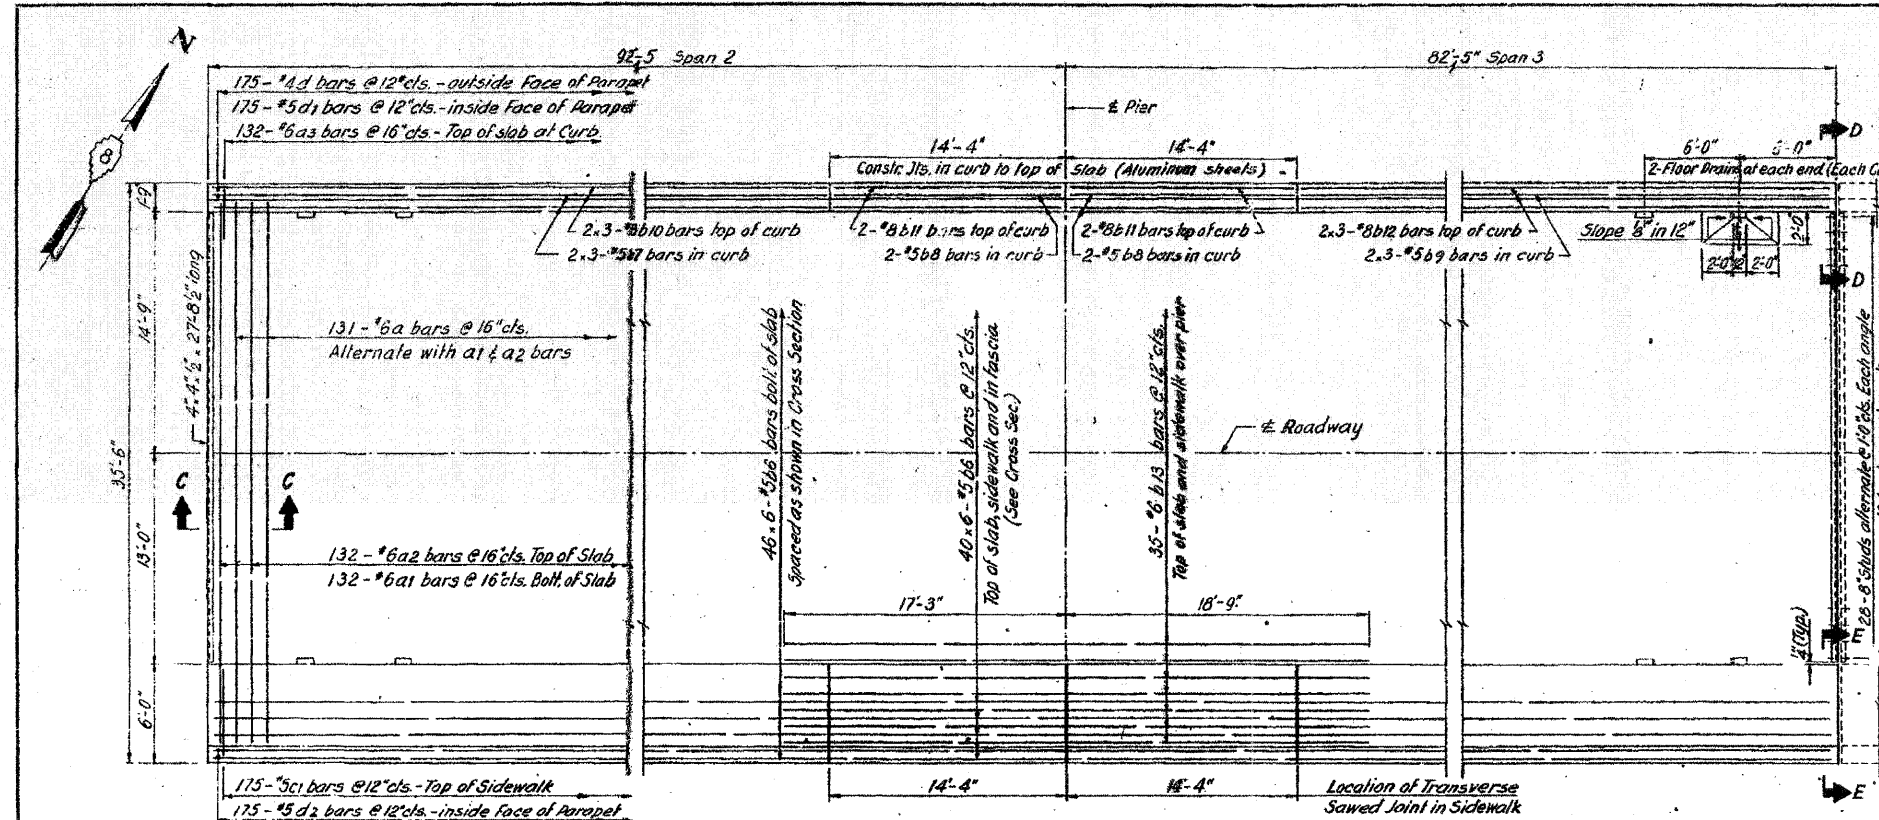 N
8
92'-5 Span 2
82'-5" Span 3
175-#4d bars @ 12"cts.-outside Face of Parapet
175-#5d1 bars @ 12"cts.-inside Face of Parapet
132-#6a3 bars @ 16"cts.-Top of slab at Curb
℄ Pier
14'-4"
14'-4"
Constr. Jts. in curb to top of Slab (Aluminum sheets)
6'-0"
6'-0"
D
2-Floor Drains at each end (Each
1'-9"
2x3-#8b10 bars top of curb
2x3-#5b7 bars in curb
2-#8b11 bars top of curb
2-#5b8 bars in curb
2-#8b11 bars top of curb
2-#5b8 bars in curb
2x3-#8b12 bars top of curb
2x3-#5b9 bars in curb
Slope in 12"
2'-0"
2'-0"
2'-0"
D
4"x4"x½"x 27'-8½" long
14'-9"
131-#6a bars @ 16"cts.
Alternate with a1 & a2 bars
46x6-#5b6 bars bott. of slab
Spaced as shown in Cross Section
40x6-#5b6 bars @ 12"cts.
Top of slab, sidewalk and in fascia
(See Cross Sec.)
35-#6b13 bars @ 12"cts.
Top of slab and sidewalk over pier
℄ Roadway
35'-6"
C
C
13'-0"
132-#6a2 bars @ 16"cts. Top of Slab
132-#6a1 bars @ 16"cts. Bott. of Slab
28-8"Studs alternate @ 1'-0"cts. Each angle
17'-3"
18'-9"
¼"(Typ.)
E
6'-0"
175-#5c1 bars @ 12"cts.-Top of Sidewalk
175-#5d2 bars @ 12"cts.-inside Face of Parapet
14'-4"
14'-4"
Location of Transverse
Sawed Joint in Sidewalk
E